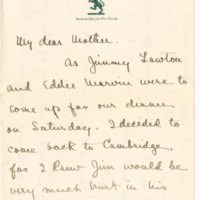 Alpha Delta Phi Club
My dear Mother.
As Jimmy Lawton
and Eddie Marvin were to
come up for our dinner
on Saturday. I decided to
come back to Cambridge,
for I knew Jim would be
very much hurt in his